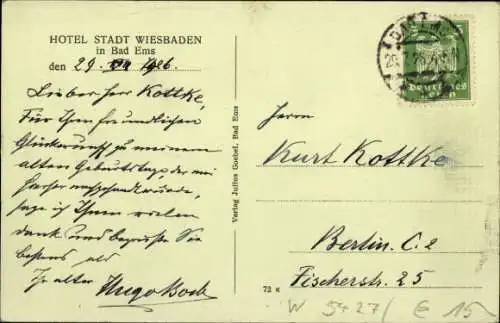 HOTEL STADT WIESBADEN
in Bad Ems
den 29. 1926.
Lieber Herr Kottke,
Für Ihren freundlichen
Glückwunsch zu meinem
alten Geburtstag, der mir
hierher nachgesandt wurde,
sage ich Ihnen vielen
Dank und begrüsse Sie
bestens als
Ihr alter Hugo Bock
Verlag Julius Goebel, Bad Ems
72 K
Deutsches
Reich
Herrn
Kurt Kottke
Berlin. C. 2
Fischerstr. 25
W 5427/ € 15